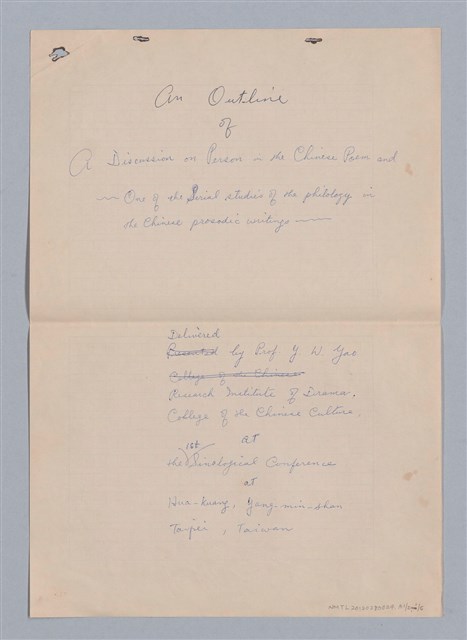 An Outline
of
A Discussion on Person in the Chinese Poem and
— One of the Serial studies of the philology in
the Chinese prosodic writings —
Delivered
Presented by Prof. Y. W. Yao
College of the Chinese
Research Institute of Drama,
College of the Chinese Culture,
at
1st
the Sinological Conference
at
Hua-kuang, Yang-min-shan
Taipei, Taiwan